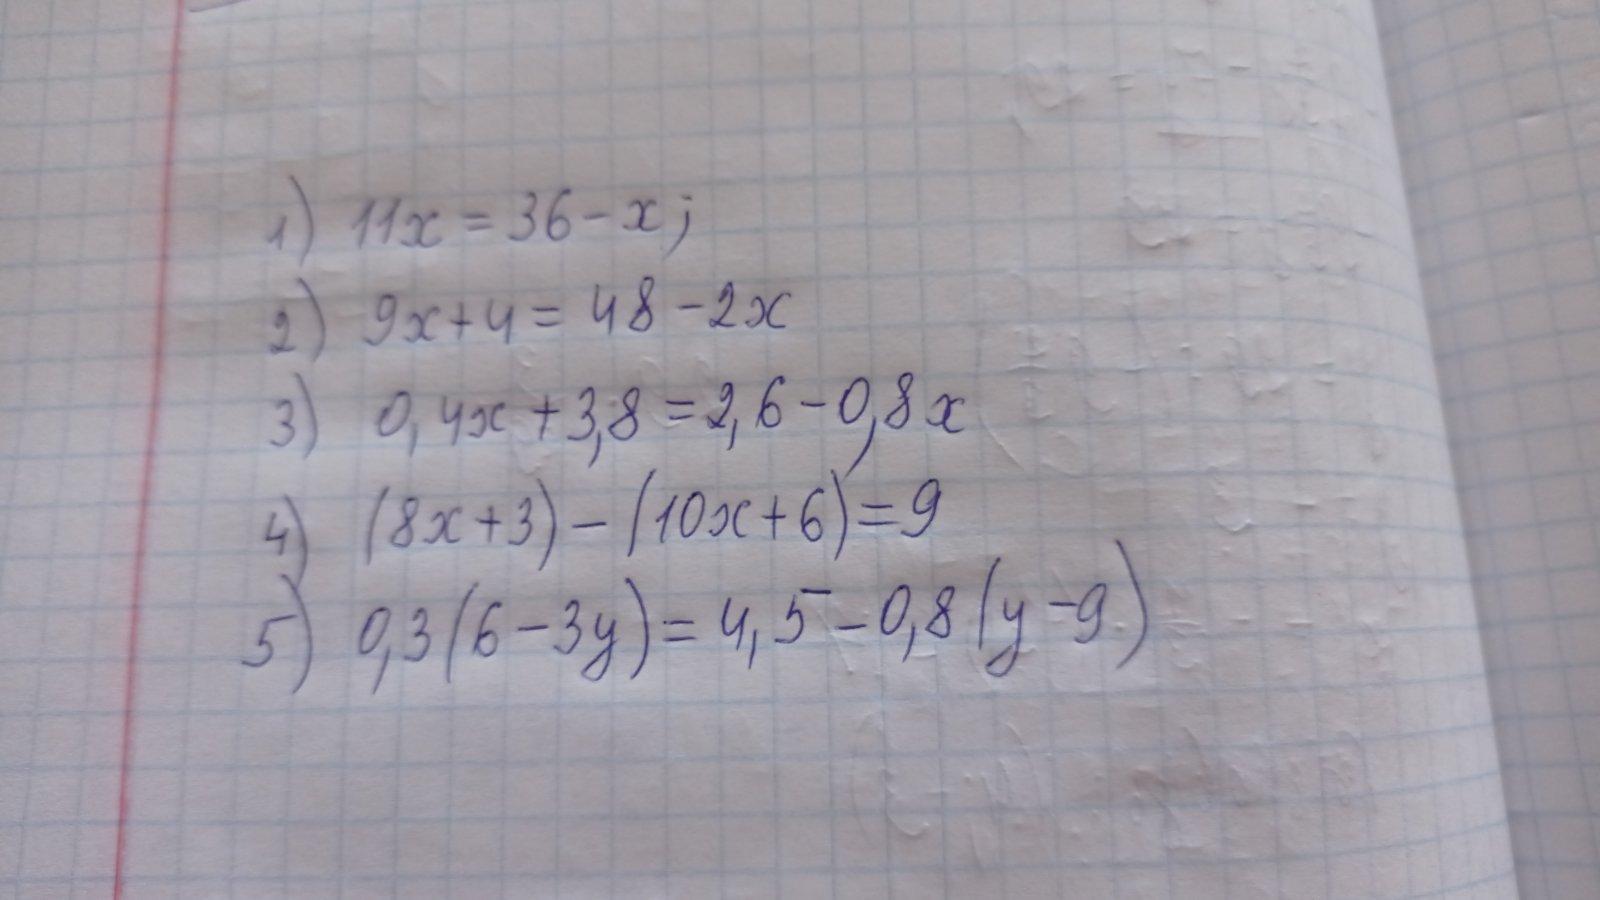 1) 11x = 36 - x;
2) 9x + 4 = 48 - 2x
3) 0,4x + 3,8 = 2,6 - 0,8x
4) (8x + 3) - (10x + 6) = 9
5) 0,3(6 - 3y) = 4,5 - 0,8(y - 9)